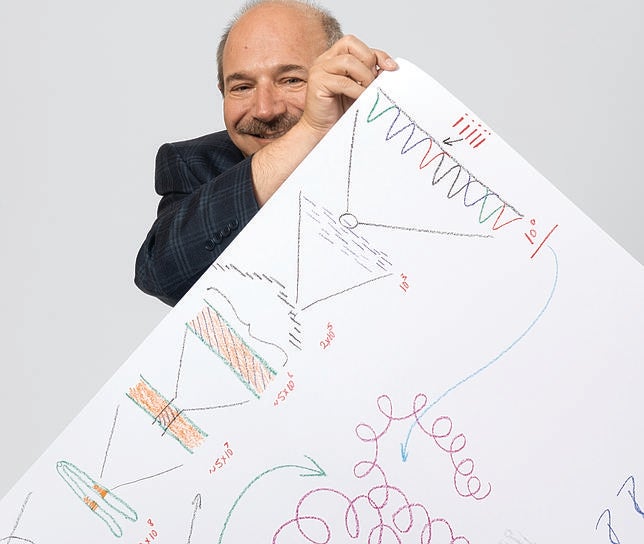 10⁰
10³
2x10⁵
~5x10⁶
~5x10⁷
x10⁸